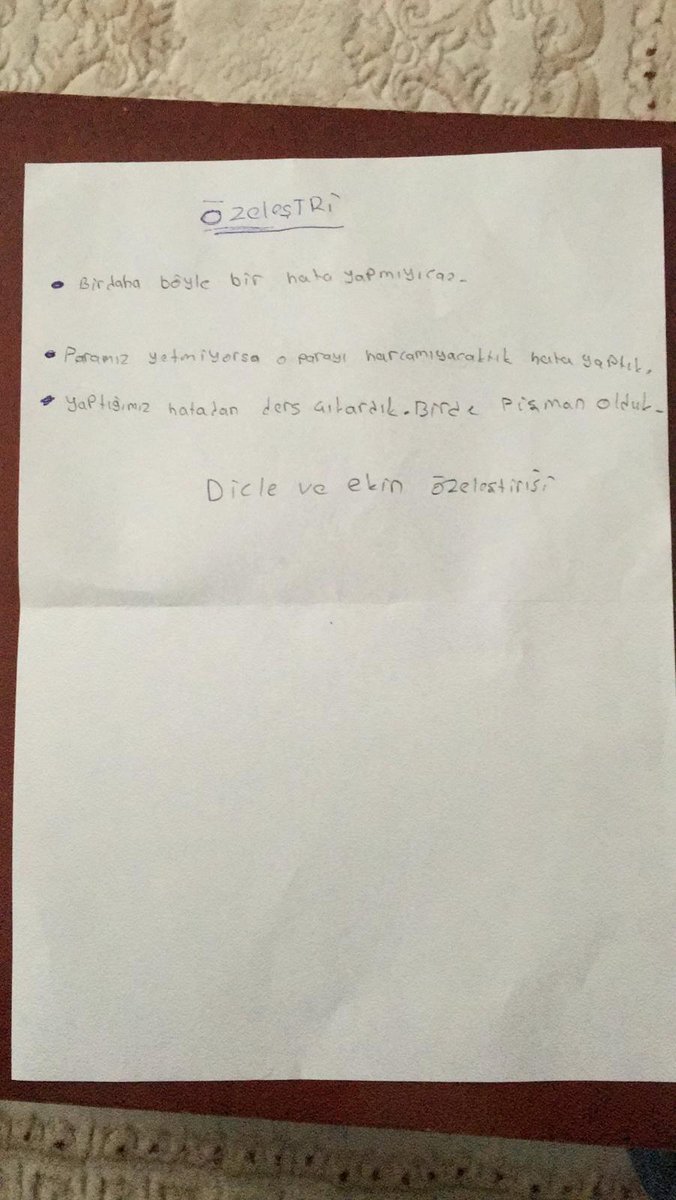 ÖzeleşTRi
• Birdaha böyle bir hata yapmıyıcaz.
• Paramız yetmiyorsa o parayı harcamıyacaktık hata yaptık.
• yaptığımız hatadan ders çıkardık. Birde Pişman olduk.
Dicle ve ekin özeleştirisi